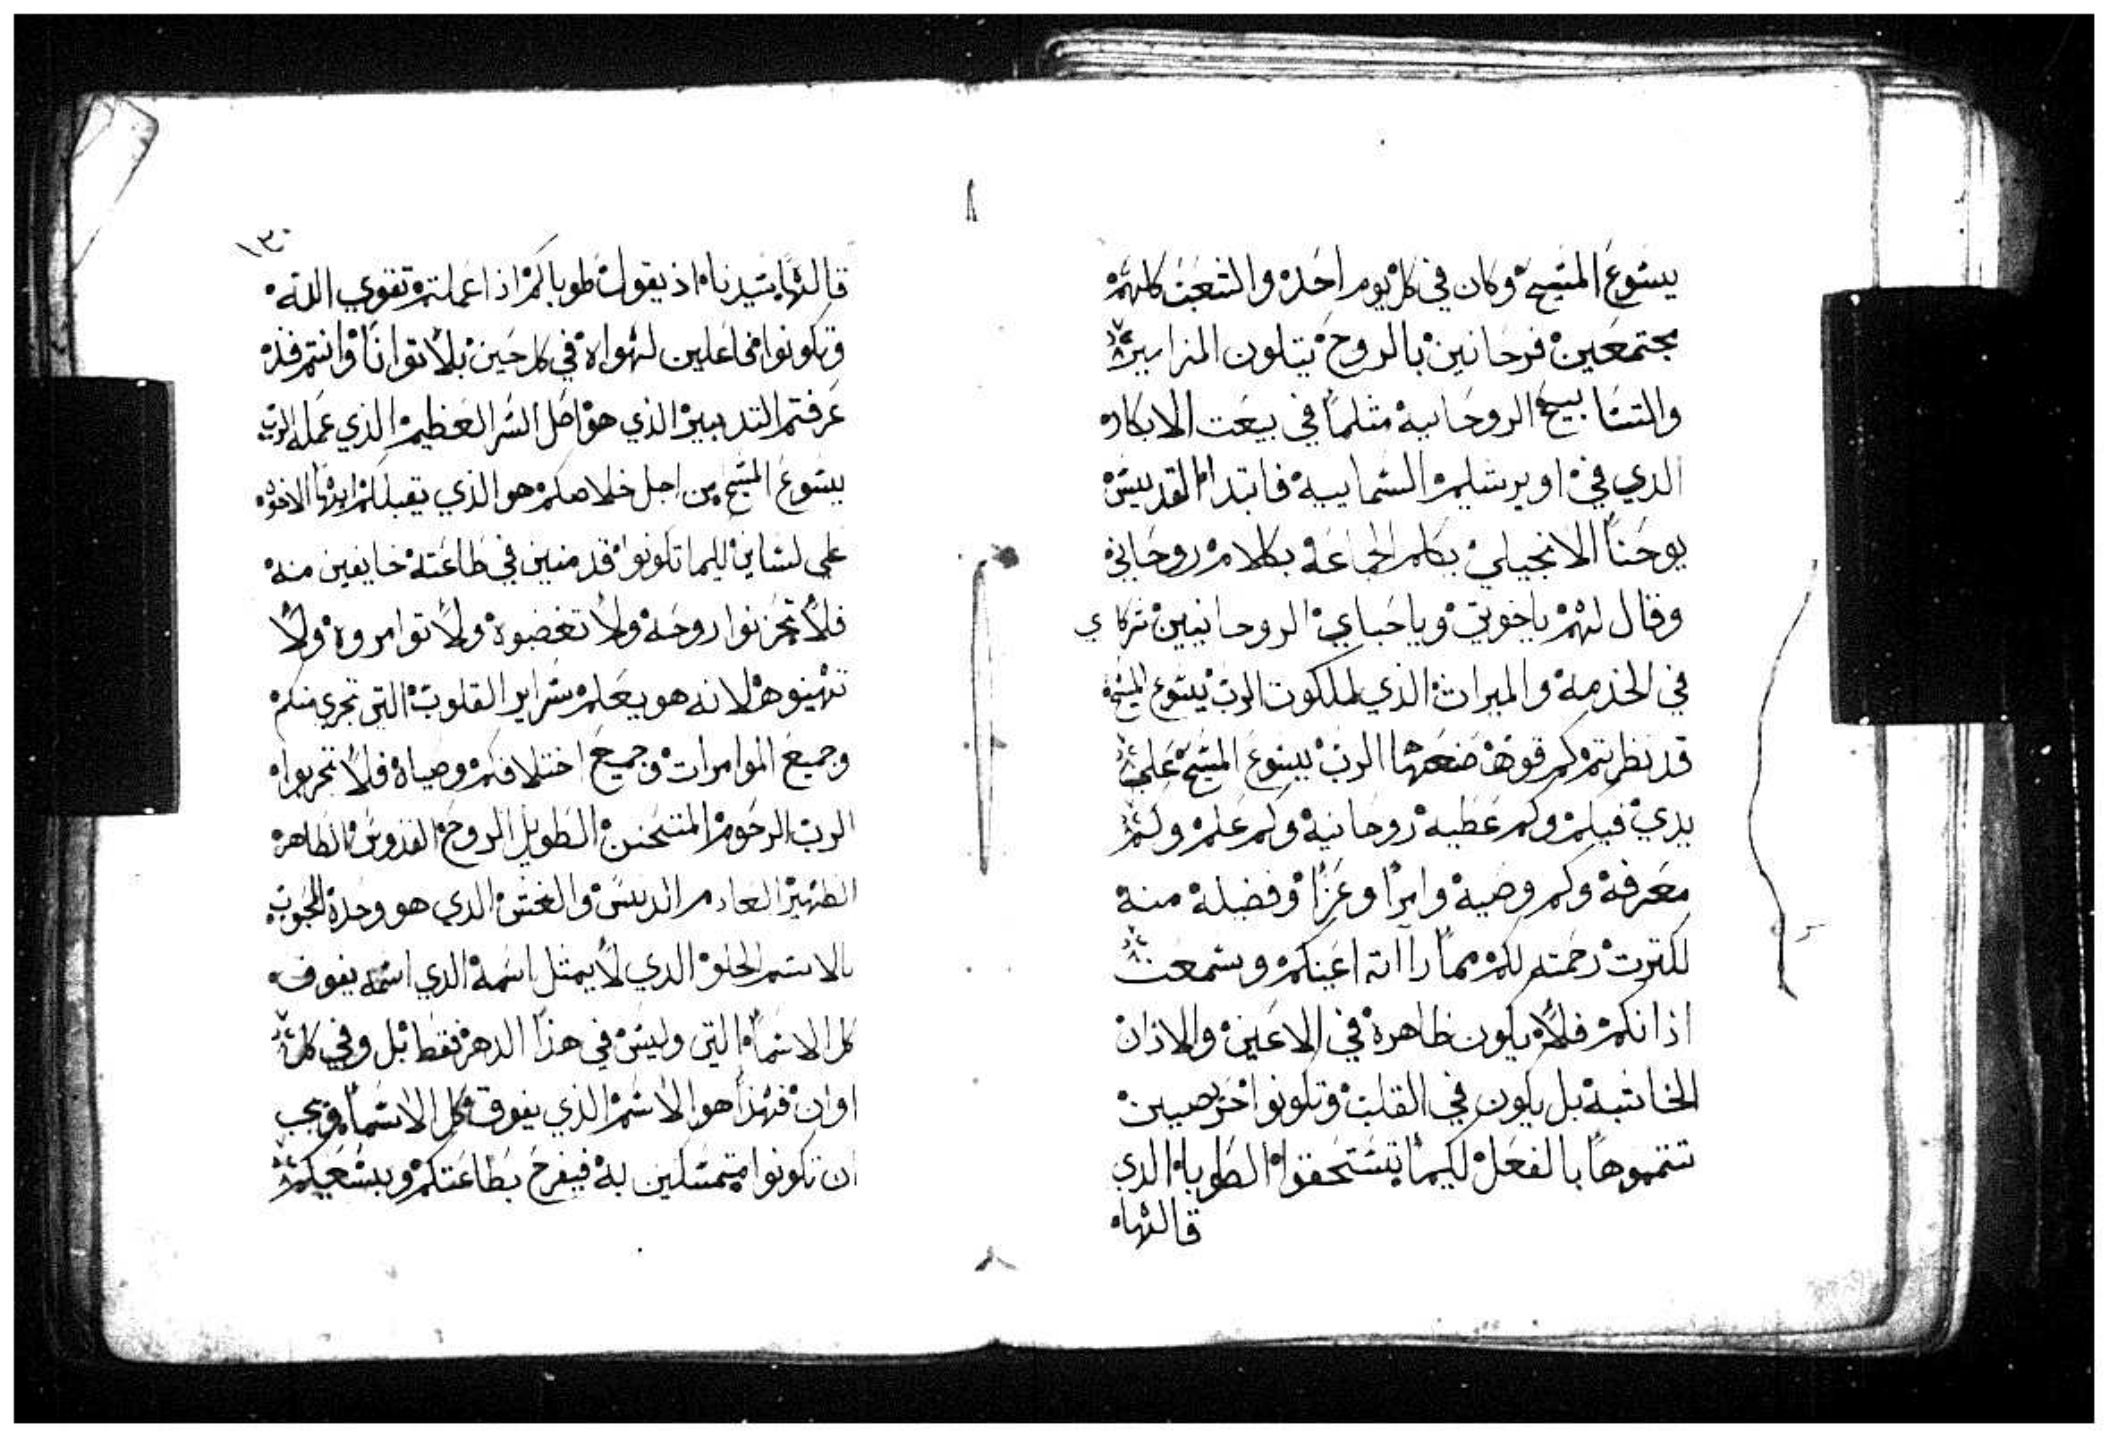 يسوع المسيح وكان في كل يوم احد والشعب كلهم
مجتمعين فرحانين بالروح يتلون المزامير
والتسابيح الروحانيه متلما في بيعت الابكار
الدي في اويرشليم السماييه فابتدا القديس
يوحنا الانجيلي يكلم الجماعه بكلام روحاني
وقال لهم ياخوتي وياحباي الروحانيين شركاي
في الخدمه والميرات الذي لملكوت الرب يسوع المسيح
قد نظرتم كم قوه صنعها الرب يسوع المسيح علي
يدي فيكم وكم عطيه روحانيه وكم علم وكم
معرفة وكم وصية وابرا وعزا وفضيلة منه
لكترت رحمته لكم مما راآته اعينكم وسمعت
اذانكم فلا يكون ظاهرة في الاعين والاذان
الخاسه بل يكون في القلب وتكونوا حريصين
تتمموها بالفعل لكيما تستحقوا الطوبا الدي
قالها
١٣٠
قالها سيدنا اذ يقول طوباكم اذا عملتم تقوي الله
وتكونوا فاعلين لهواه في كل حين بلا توانا وانتم فقد
عرفتم التدبير الذي هو اصل السر العظيم الذي عمله الرب
يسوع المسيح من اجل خلاصكم هو الذي يقبلكم ايها الاخوه
علي لساني ليكما تكونوا قدمنين في طاعته خايفين منه
فلا تحزنوا روحه ولا تغضبوة ولا توامروة ولا
تهينوه لانه هو يعلم سراير القلوب التي تجري منكم
وجميع الموامرات وجميع اختلافكم وصياه فلا تجربوا
الرب الرحوم المتحنن الطويل الروح القدوس الطاهر
الطهير العادم الدنس والغش الدي هو وحدة المحبوب
بالاسم الحلو الدي لا يمثل اسمه الدي اسمه يفوق
كل الاسما التي وليس في هذا الدهر فقط بل وفي كل
اوان فهذا هو الاسم الذي يفوق كل الاسما ويجب
ان تكونوا متمسكين به فيفرح بطاعتكم وبسعيكم